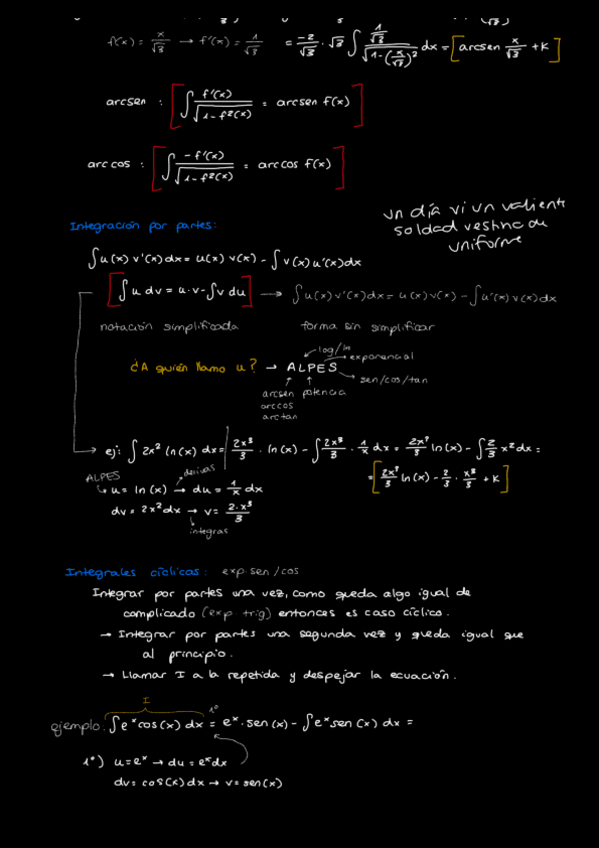 f(x) = x/√3 → f'(x) = 1/√3 = -2/√3 · √3 ∫ (1/√3)/√(1-(x/√3)²) dx = [arcsen x/√3 + K]
arcsen : [∫ f'(x)/√(1-f²(x)) = arcsen f(x)]
arccos : [∫ -f'(x)/√(1-f²(x)) = arccos f(x)]
un día vi un valiente
soldad vestino de
uniforme
Integración por partes:
∫u(x) v'(x) dx = u(x) v(x) - ∫v(x) u'(x) dx
[∫u dv = u·v - ∫v du] → ∫u(x) v'(x) dx = u(x) v(x) - ∫u'(x) v(x) dx
notación simplificada forma sin simplificar
log/ln
exponencial
¿A quién llamo u? → ALPES
sen/cos/tan
arcsen potencia
arccos
arctan
ej: ∫2x² ln(x) dx = 2x³/3 · ln(x) - ∫2x³/3 · 1/x dx = 2x³/3 ln(x) - ∫2/3 x² dx =
= [2x³/3 ln(x) - 2/3 · x³/3 + K]
ALPES derivas
u = ln(x) → du = 1/x dx
dv = 2x² dx → v = 2·x³/3
integras
Integrales cíclicas: exp·sen/cos
Integrar por partes una vez, como queda algo igual de
complicado (exp trig) entonces es caso cíclico.
→ Integrar por partes una segunda vez y queda igual que
al principio.
→ Llamar I a la repetida y despejar la ecuación.
I
1º
ejemplo: ∫eˣ cos(x) dx = eˣ · sen(x) - ∫eˣ sen(x) dx =
1º) u = eˣ → du = eˣ dx
dv = cos(x) dx → v = sen(x)